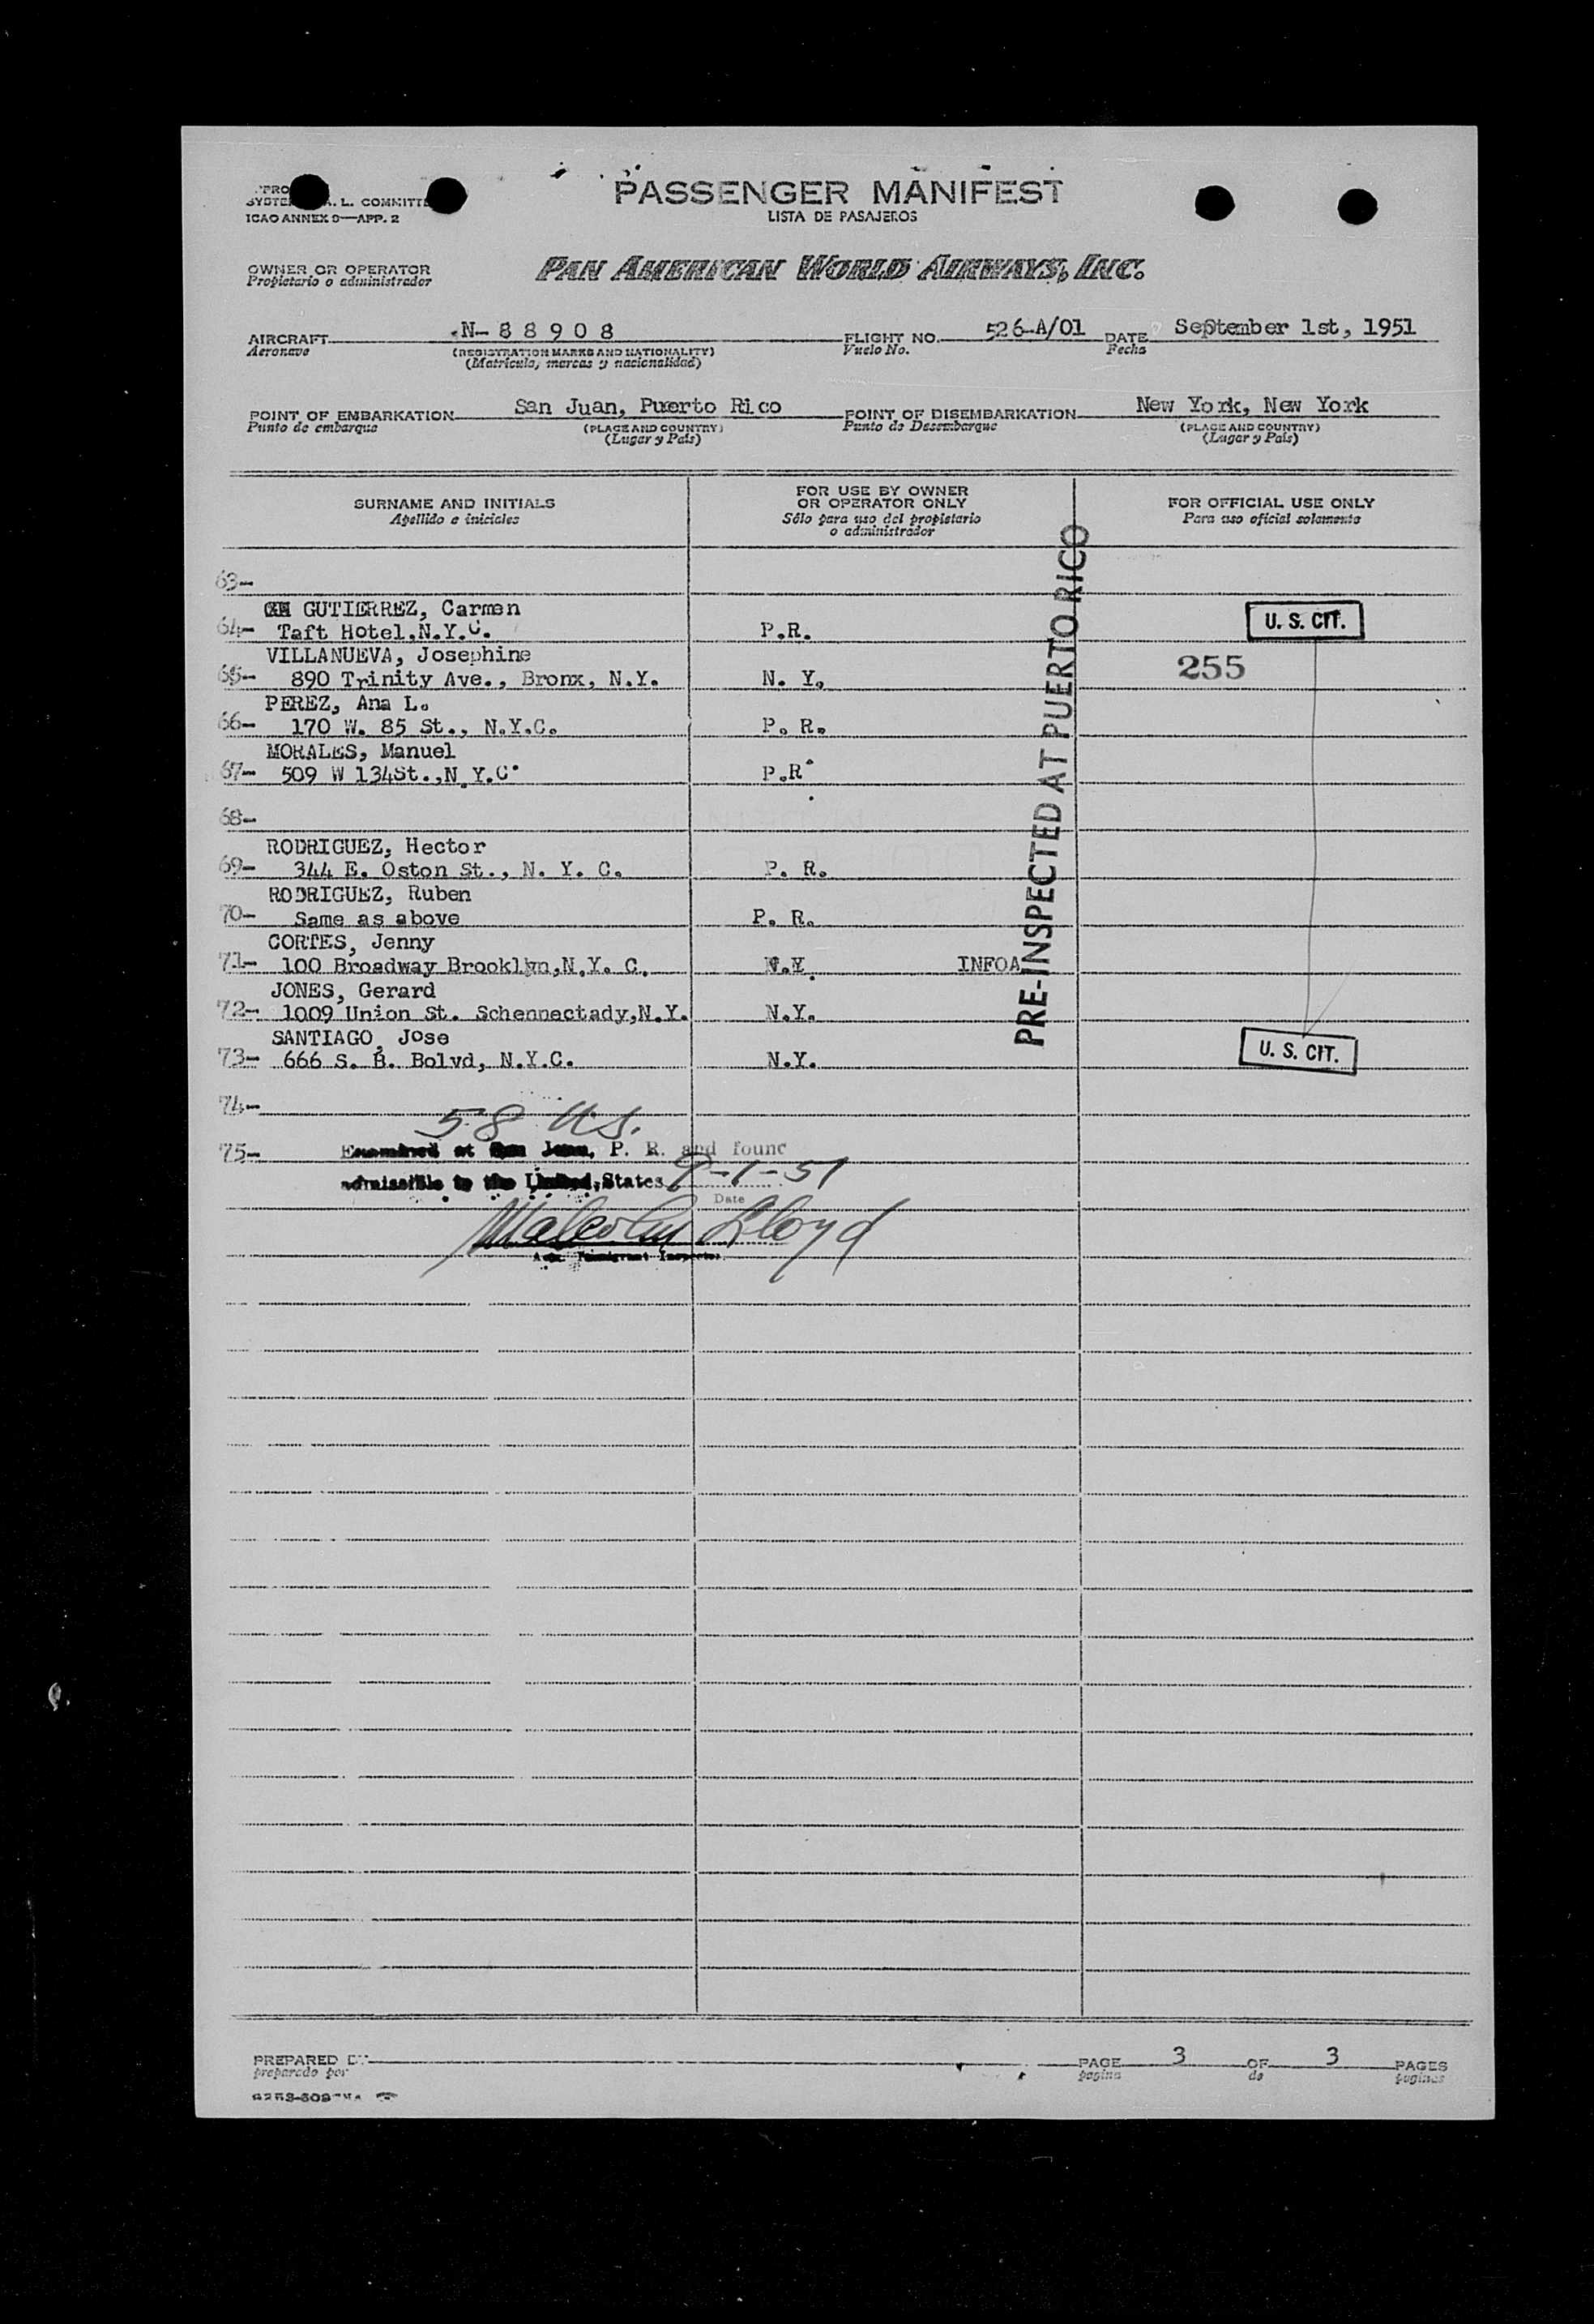 PASSENGER MANIFEST
LISTA DE PASAJEROS
L. COMMITTE
ICAO ANNEX 9—APP. 2
OWNER OR OPERATOR
Propietario o administrador
PAN AMERICAN WORLD AIRWAYS, INC.
AIRCRAFT N-88908 FLIGHT NO. 526-A/01 DATE September 1st, 1951
Aeronave (REGISTRATION MARKS AND NATIONALITY) Vuelo No. Fecha
(Matricula, marcas y nacionalidad)
POINT OF EMBARKATION San Juan, Puerto Rico POINT OF DISEMBARKATION New York, New York
Punto de embarque (PLACE AND COUNTRY) Punto de Desembarque (PLACE AND COUNTRY)
(Lugar y País) (Lugar y País)
SURNAME AND INITIALS FOR USE BY OWNER OR OPERATOR ONLY FOR OFFICIAL USE ONLY
Apellido e iniciales Sólo para uso del propietario o administrador Para uso oficial solamente
PRE-INSPECTED AT PUERTO RICO
63-
GUTIERREZ, Carmen
64- Taft Hotel,N.Y.C. P.R. U. S. CIT.
VILLANUEVA, Josephine
65- 890 Trinity Ave., Bronx, N.Y. N. Y. 255
PEREZ, Ana L.
66- 170 W. 85 St., N.Y.C. P. R.
MORALES, Manuel
67- 509 W 134St.,N.Y.C. P.R.
68-
RODRIGUEZ, Hector
69- 344 E. Oston St., N. Y. C. P. R.
RODRIGUEZ, Ruben
70- Same as above P. R.
CORTES, Jenny
71- 100 Broadway Brooklyn,N.Y. C. N.Y. INFOA
JONES, Gerard
72- 1009 Union St. Schennectady,N.Y. N.Y.
SANTIAGO, Jose
73- 666 S. B. Bolvd, N.Y.C. N.Y. U. S. CIT.
74-
58 U.S.
75- Examined at San Juan, P. R. and found
admissible to the United States 9-1-51
Date
Malcolm Lloyd
Immigrant Inspector
PREPARED BY PAGE 3 OF 3 PAGES
preparado por pagina de paginas